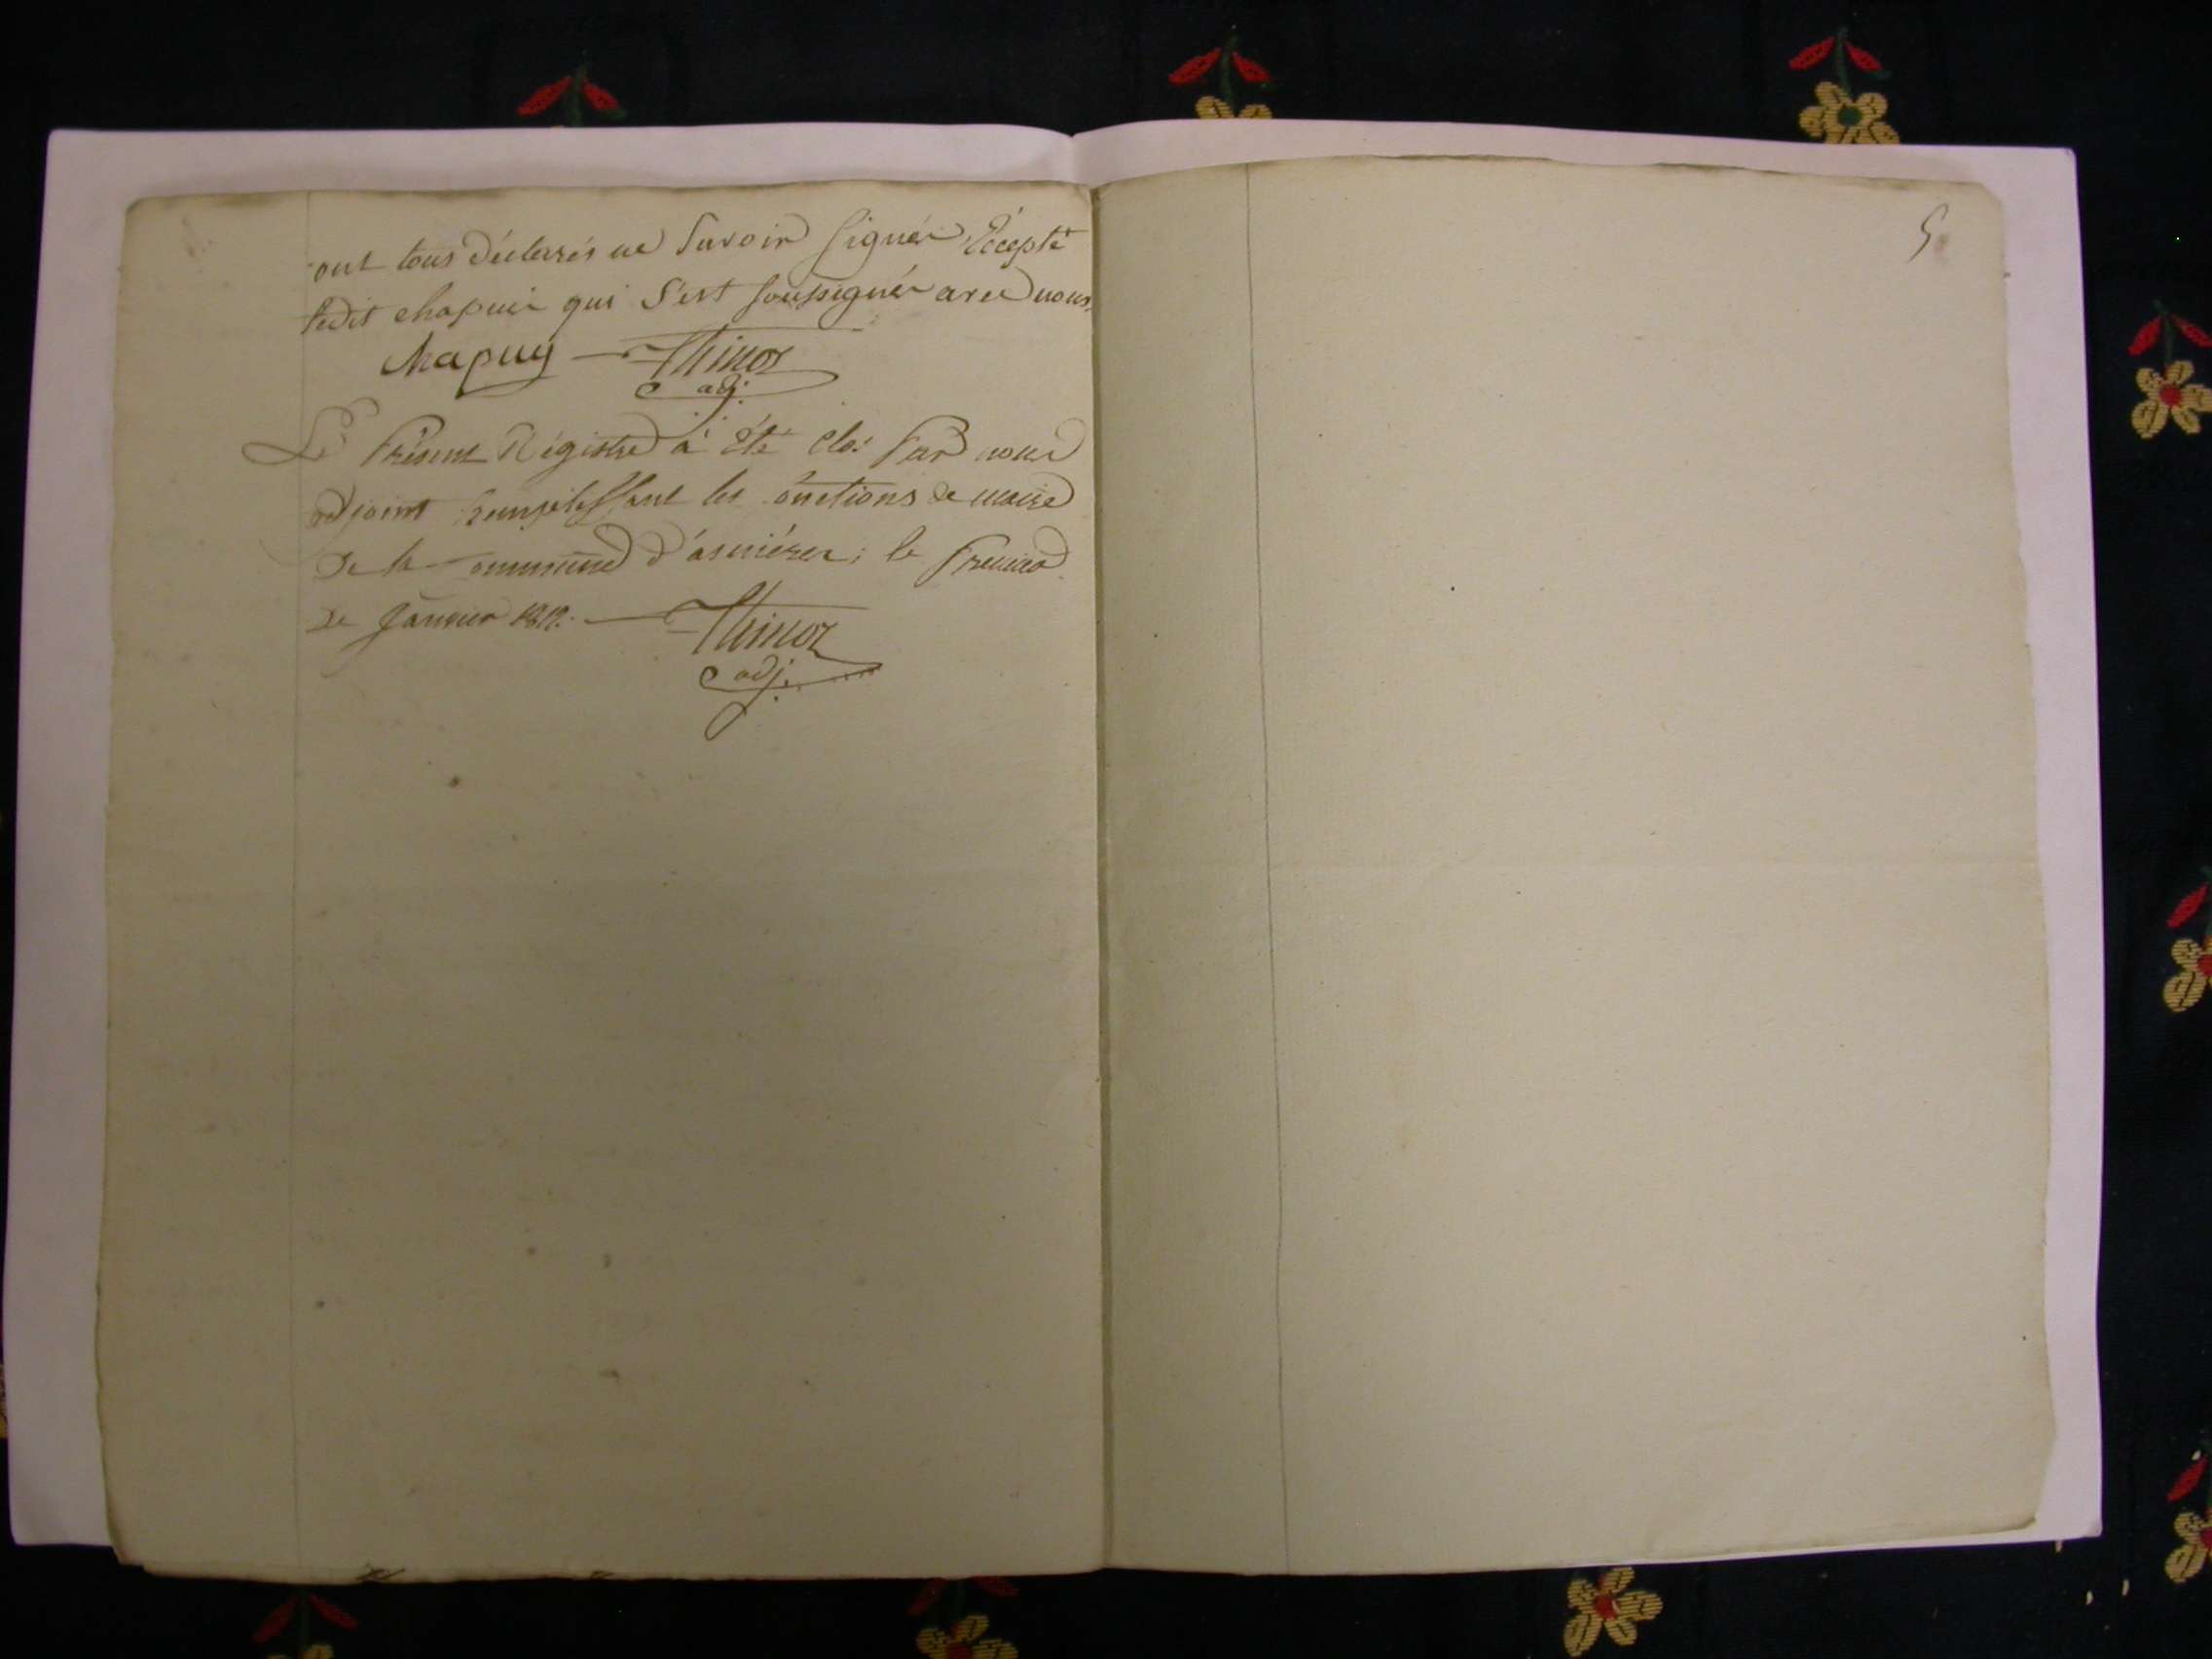 ont tous déclarés ne Savoir signér Eccepté
ledit chapuis qui S'est soussignér avec nous
Chapuy Thinoz
adj.
Le Présent Régistre à été clos Par nous
adjoint remplissant les onctions de maire
de la ommune d'asniéres; le Premier
de Janvier 1812. Thinoz
adj.
5